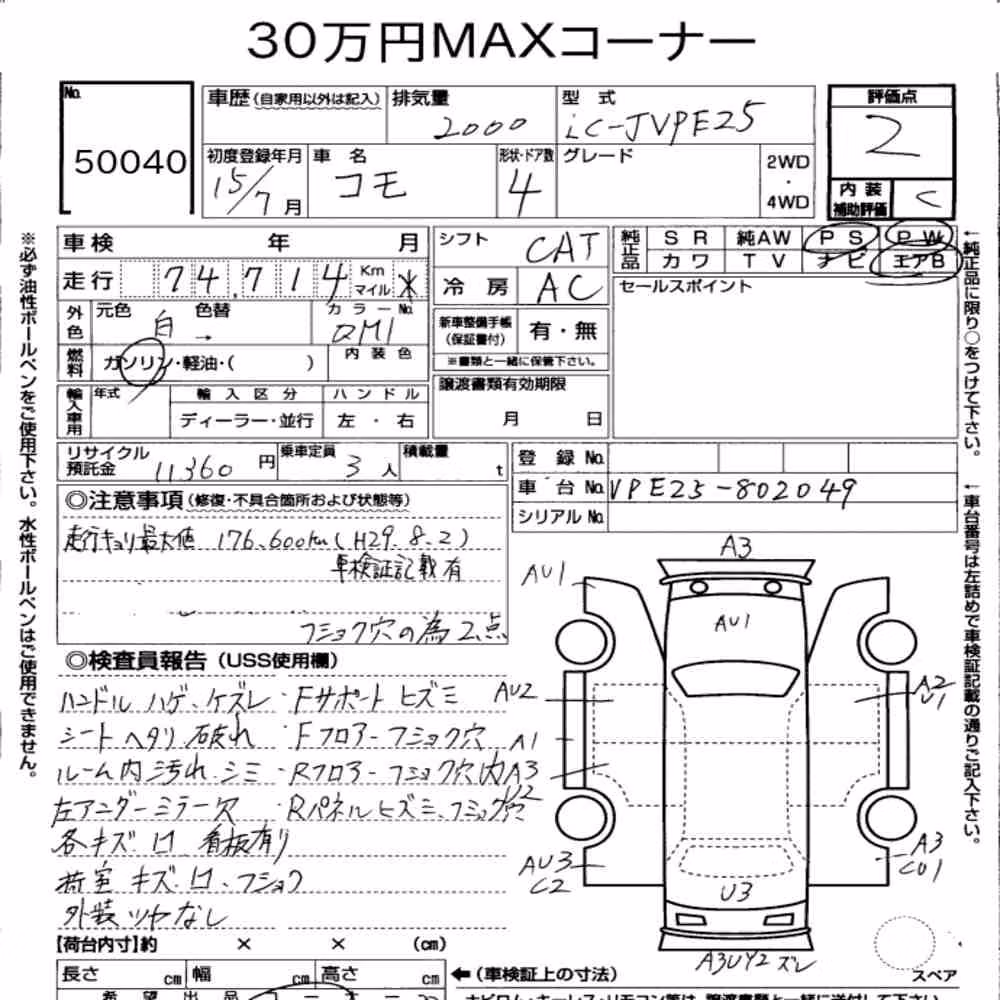 30万円MAXコーナー
No. 50040
車歴(自家用以外は記入) 排気量 2000 型式 LC-JVPE25
評価点 2
初度登録年月 15/7月 車名 コモ 形状・ドア数 4 グレード 2WD・4WD
内装補助評価 C
車検 年 月
走行 74,714 Km マイル *
外色 元色 白 → 色替 カラーNo. QM1
燃料 ガソリン・軽油・( ) 内装色
輸入車用 年式 輸入区分 ディーラー・並行 ハンドル 左・右
シフト CAT
冷房 AC
新車整備手帳(保証書付) 有・無
※書類と一緒に保管下さい。
譲渡書類有効期限
月 日
純正品 SR 純AW PS PW
カワ TV ナビ エアB
セールスポイント
リサイクル預託金 11360円 乗車定員 3人 積載量 t
登録No.
車台No. VPE25-802049
シリアルNo.
◎注意事項(修復・不具合箇所および状態等)
走行キョリ最大値 176,600km (H29.8.2)
車検証記載有
フショク穴の為2点
◎検査員報告(USS使用欄)
ハンドル ハゲ、ケズレ・Fサポート ヒズミ
シート ヘタリ 破れ Fフロアーフショク穴
ルーム内汚れ.シミ・Rフロアーフショク穴
左アンダーミラー欠 ・Rパネルヒズミ、フショク穴
各キズ 凹 看板有り
荷室 キズ.凹、フショク
外装ツヤなし
A3
AU1
AU1
AU2
A2
U1
A1
A3
AU3
C2
A3
CU1
U3
A3UY2 ズレ
スペア
【荷台内寸】約 × × (cm)
長さ cm 幅 cm 高さ cm
←(車検証上の寸法)
希望出品
※必ず油性ボールペンをご使用下さい。水性ボールペンはご使用できません。
←純正品に限り○をつけて下さい。
←車台番号は左詰めで車検証記載の通りご記入下さい。